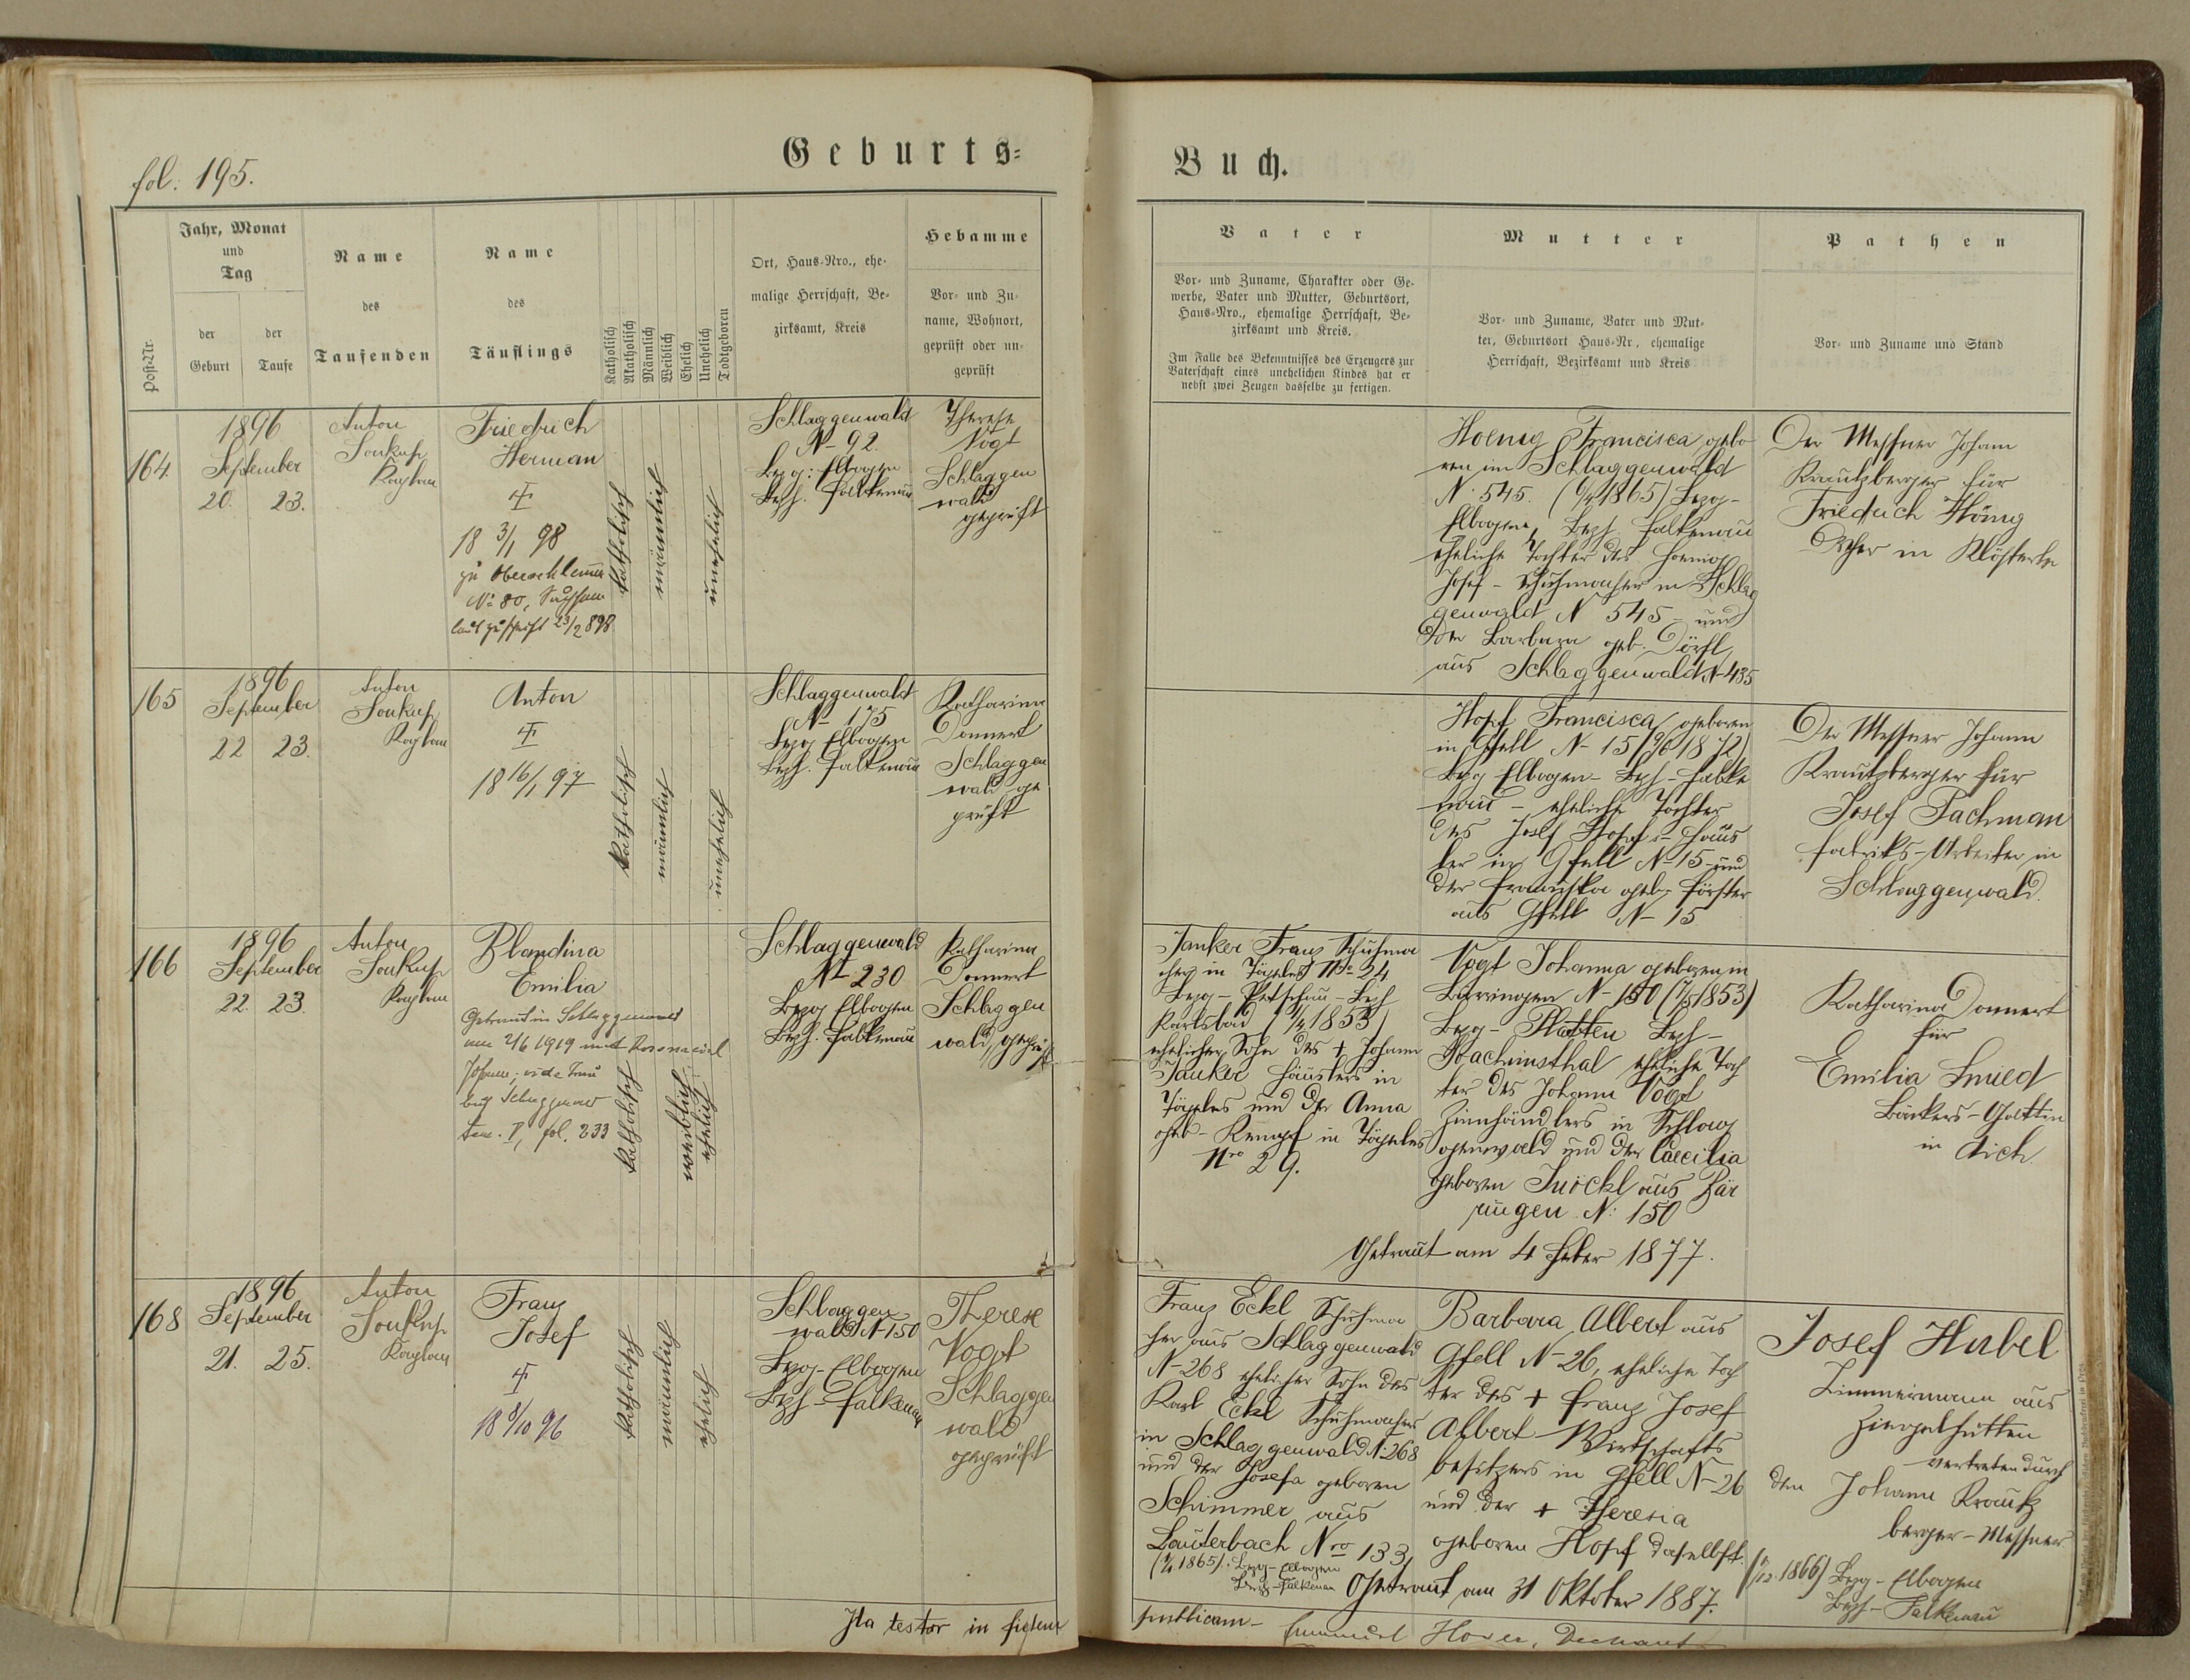 fol: 195.
Geburts=
Buch.
Post-Nr.
Jahr, Monat
und
Tag
der
Geburt
der
Taufe
Name
des
Taufenden
Name
des
Täuflings
Katholisch
Akatholisch
Männlich
Weiblich
Ehelich
Unehelich
Todtgeboren
Ort, Haus-Nro., ehe-
malige Herrschaft, Be-
zirksamt, Kreis
Hebamme
Vor- und Zu-
name, Wohnort,
geprüft oder un-
geprüft
Vater
Vor- und Zuname, Charakter oder Ge-
werbe, Vater und Mutter, Geburtsort,
Haus-Nro., ehemalige Herrschaft, Be-
zirksamt und Kreis.
Im Falle des Bekenntnisses des Erzeugers zur
Vaterschaft eines unehelichen Kindes hat er
nebst zwei Zeugen dasselbe zu fertigen.
Mutter
Vor- und Zuname, Vater und Mut-
ter, Geburtsort Haus-Nr. ehemalige
Herrschaft, Bezirksamt und Kreis
Pathen
Vor- und Zuname und Stand
164
1896
September
20. 23.
Anton
Soukup
Kaplan
Friedrich
Herman
18 3/1 98
zu
No 80, Sachsen
laut Zuschrift 23/2 898
katholisch
männlich
unehelich
Schlaggenwald
N- 92.
Bezg: Elbogen
Bezh. Falkenau
Therese
Vogt
Schlaggen
wald
geprüft
Hoenig Francisca gebo
ren in Schlaggenwald
N. 545. 1865) Bezg-
Elbogen, Bezh Falkenau
eheliche Tochter des Hoenig
Josef - Schuhmacher in Schlag
genwald N 545 - und
der Barbara geb. Dörfl
aus Schlaggenwald N-435
Der Messner Johann
Krautzberger für
Friedrich Hönig
in Klösterle
165
1896
September
22 23.
Anton
Soukup
Kaplan
Anton
18 16/1 97
katholisch
männlich
unehelich
Schlaggenwald
N- 175
Bezg Elbogen
Bezh. Falkenau
Katharina
Donnert
Schlaggen
wald ge
prüft
Hopf Francisca geboren
in Gfell N- 15 1872)
Bezg Elbogen - Bezh - Falke
nau - eheliche Tochter
des Josef Hopf - Häus
ler in Gfell N-15 und
der Franziska geb. Förster
aus Gfell N- 15
Der Messner Johann
Krautzberger für
Josef Pachman
Fabriks-Arbeiter in
Schlaggenwald.
166
1896
September
22. 23.
Anton
Soukup
Kaplan
Blandina
Emilia
Getraut in Schlaggenwald
am 2/6 1919 mit
Johann; vide Trau
buch Schlaggenwald
tom. V, fol. 233
katholisch
weiblich
ehelich
Schlaggenwald
N- 230
Bezg Elbogen
Bezh. Falkenau
Katharina
Donnert
Schlaggen
wald, geprüft
Janker Franz Schuhma
cher in Töppeles Nro 24
Bezg - Petschau - Bezh
Karlsbad ( 1853)
ehelicher Sohn des + Johann
Janker Häuslers in
Töppeles und der Anna
geb - Kempf in Töppeles
Nro 29.
Vogt Johanna geboren in
Bärringen N- 150 ( 1853)
Bezg - Platten Bezh -
Joachimsthal eheliche Toch
ter des Johann Vogt
Zinnhändlers in Schlag
genwald und der Caecilia
geboren aus Bär
ringen N: 150
Getraut am 4 Feber 1877.
Katharina Donnert
für
Emilia Smied
Bäckers-Gattin
in Aich
168
1896
September
21. 25.
Anton
Soukup
Kaplan
Franz
Josef
18 8/10 96
katholisch
männlich
ehelich
Schlaggen
wald N-150
Bezg - Elbogen
Bezh - Falkenau
Therese
Vogt
Schlaggen
wald
geprüft
Franz Eckl Schuhma
cher aus Schlaggenwald
N-268 ehelicher Sohn des
Karl Eckl Schuhmachers
in Schlaggenwald N-268
und der Josefa geboren
Schimmer aus
Lauterbach Nro 133,
1865). Bezg - Elbogen
Bezh - Falkenau
Barbara Albert aus
Gfell N-26, eheliche Toch
ter des + Franz Josef
Albert Wirtschafts
besitzers in Gfell N-26
und der + Theresia
geboren Hopf daselbst.
1866) Bezg - Elbogen
Bezh - Falkenau
Getraut am 31 Oktober 1887.
Josef Habel
Zimmermann aus
Ziegelhütten
vertreten durch
den Johann Krautz
berger - Messner
Ita testor in fidem
publicam - Emmanuel Hover, Dechant